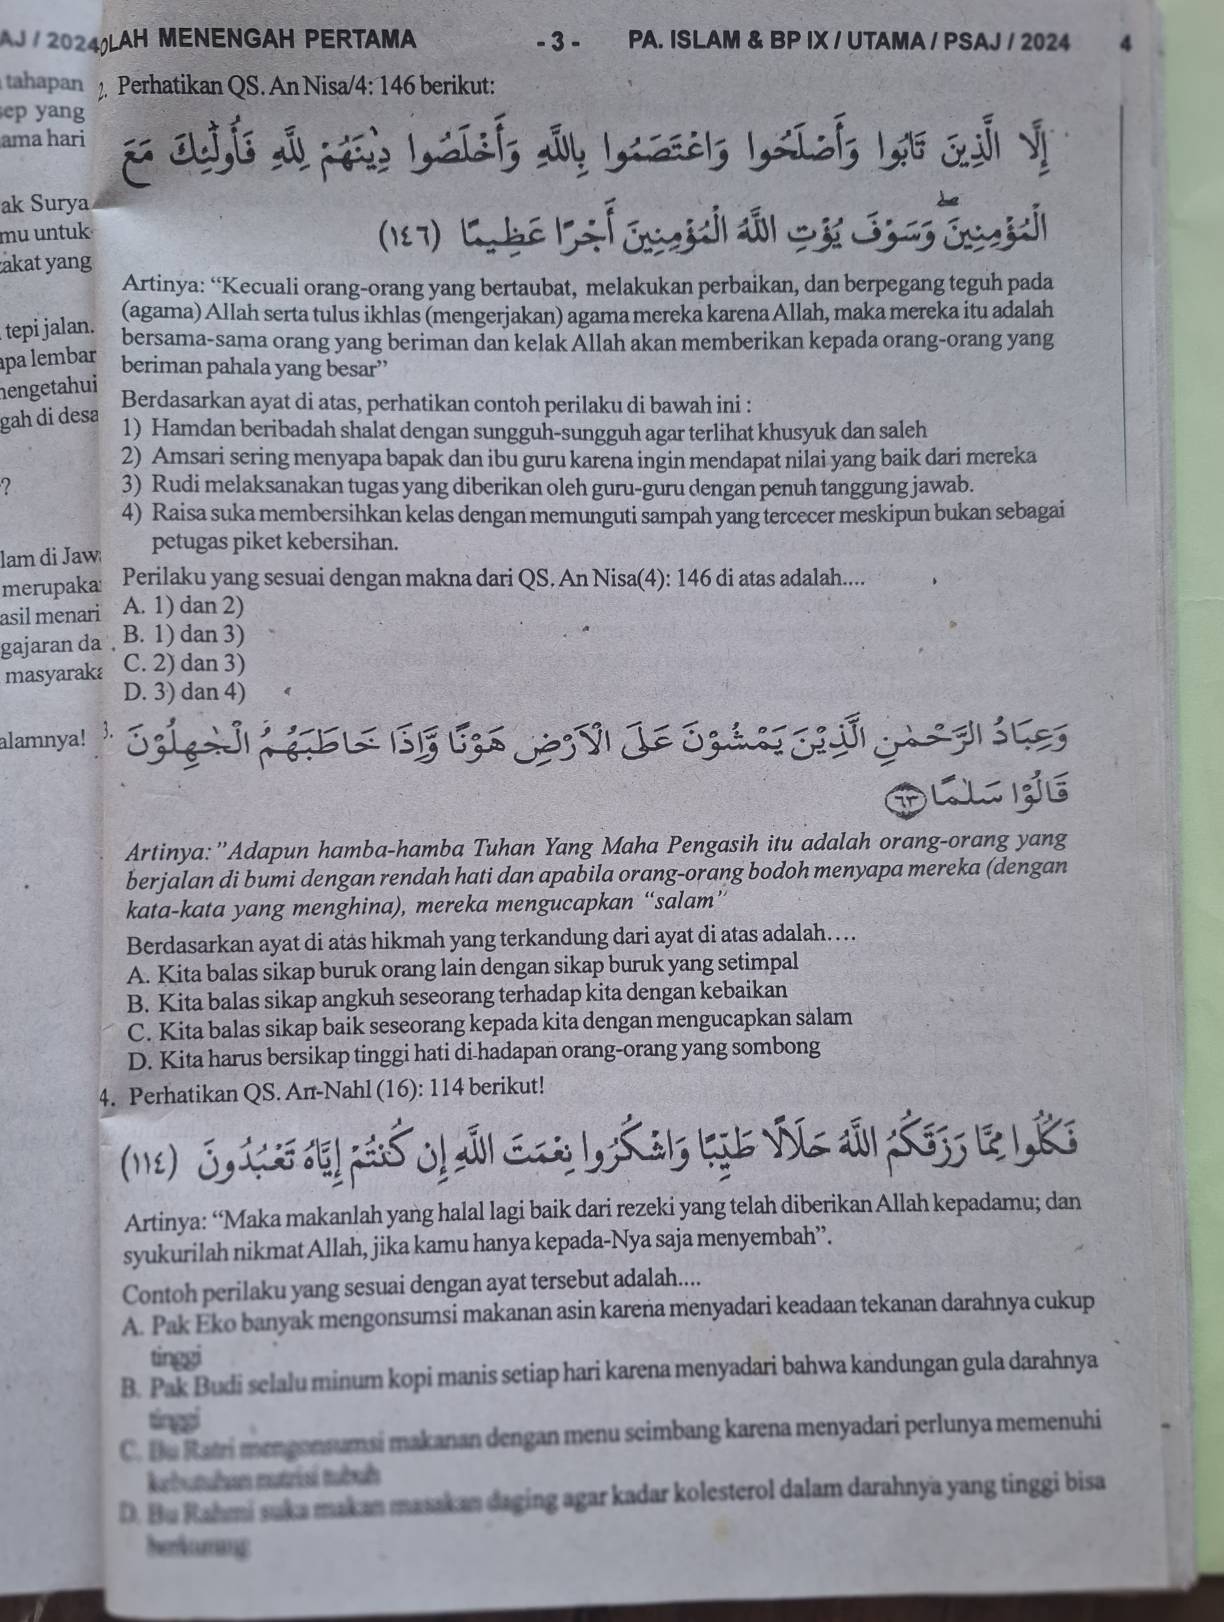 AJ / 2024
tahapan
sep yang
ama hari
ak Surya
mu untuk
akat yang
tepi jalan.
apa lembar
nengetahui
gah di desa
?
lam di Jaw
merupaka
asil menari
gajaran da
masyaraka
alamnya!
OLAH MENENGAH PERTAMA - 3 - PA. ISLAM & BP IX / UTAMA / PSAJ / 2024 4
2. Perhatikan QS. An Nisa/4: 146 berikut:
إِلَّا الَّذِينَ تَابُوا وَأَصْلَحُوا وَاعْتَصَمُوا بِاللَّهِ وَأَخْلَصُوا دِينَهُمْ لِلَّهِ فَأُولَٰئِكَ مَعَ
الْمُؤْمِنِينَ ۖ وَسَوْفَ يُؤْتِ اللَّهُ الْمُؤْمِنِينَ أَجْرًا عَظِيمًا (١٤٦)
Artinya: “Kecuali orang-orang yang bertaubat, melakukan perbaikan, dan berpegang teguh pada
(agama) Allah serta tulus ikhlas (mengerjakan) agama mereka karena Allah, maka mereka itu adalah
bersama-sama orang yang beriman dan kelak Allah akan memberikan kepada orang-orang yang
beriman pahala yang besar”
Berdasarkan ayat di atas, perhatikan contoh perilaku di bawah ini :
1) Hamdan beribadah shalat dengan sungguh-sungguh agar terlihat khusyuk dan saleh
2) Amsari sering menyapa bapak dan ibu guru karena ingin mendapat nilai yang baik dari mereka
3) Rudi melaksanakan tugas yang diberikan oleh guru-guru dengan penuh tanggung jawab.
4) Raisa suka membersihkan kelas dengan memunguti sampah yang tercecer meskipun bukan sebagai
petugas piket kebersihan.
Perilaku yang sesuai dengan makna dari QS. An Nisa(4): 146 di atas adalah....
A. 1) dan 2)
B. 1) dan 3)
C. 2) dan 3)
D. 3) dan 4)
3. وَعِبَادُ الرَّحْمَٰنِ الَّذِينَ يَمْشُونَ عَلَى الْأَرْضِ هَوْنًا وَإِذَا خَاطَبَهُمُ الْجَاهِلُونَ
قَالُوا سَلَامًا ٦٣
Artinya:”Adapun hamba-hamba Tuhan Yang Maha Pengasih itu adalah orang-orang yang
berjalan di bumi dengan rendah hati dan apabila orang-orang bodoh menyapa mereka (dengan
kata-kata yang menghina), mereka mengucapkan “salam”
Berdasarkan ayat di atas hikmah yang terkandung dari ayat di atas adalah....
A. Kita balas sikap buruk orang lain dengan sikap buruk yang setimpal
B. Kita balas sikap angkuh seseorang terhadap kita dengan kebaikan
C. Kita balas sikap baik seseorang kepada kita dengan mengucapkan salam
D. Kita harus bersikap tinggi hati di hadapan orang-orang yang sombong
4. Perhatikan QS. An-Nahl (16): 114 berikut!
فَكُلُوا مِمَّا رَزَقَكُمُ اللَّهُ حَلَالًا طَيِّبًا وَاشْكُرُوا نِعْمَتَ اللَّهِ إِنْ كُنْتُمْ إِيَّاهُ تَعْبُدُونَ (١١٤)
Artinya: “Maka makanlah yang halal lagi baik dari rezeki yang telah diberikan Allah kepadamu; dan
syukurilah nikmat Allah, jika kamu hanya kepada-Nya saja menyembah”.
Contoh perilaku yang sesuai dengan ayat tersebut adalah....
A. Pak Eko banyak mengonsumsi makanan asin karena menyadari keadaan tekanan darahnya cukup
tinggi
B. Pak Budi selalu minum kopi manis setiap hari karena menyadari bahwa kandungan gula darahnya
tinggi
C. Bu Ratri mengonsumsi makanan dengan menu seimbang karena menyadari perlunya memenuhi
kebutuhan nutrisi tubuh
D. Bu Rahmi suka makan masakan daging agar kadar kolesterol dalam darahnya yang tinggi bisa
berkurang